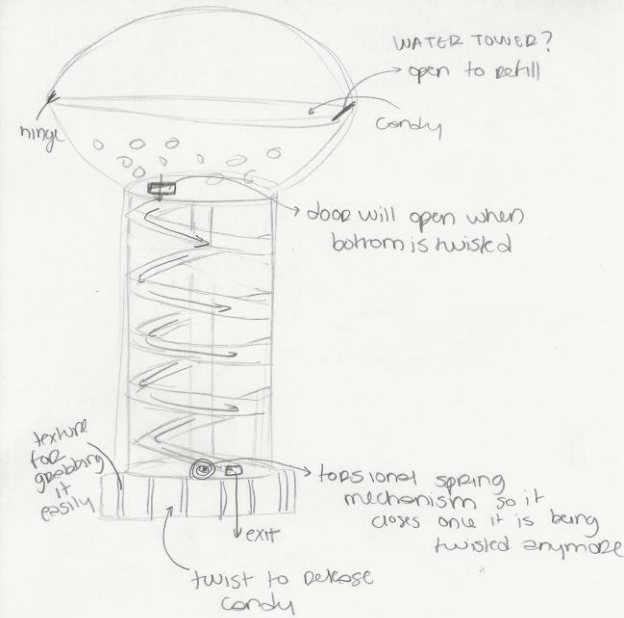 WATER TOWER?
open to refill
hinge
candy
door will open when
bottom is twisted
texture
for
grabbing
it
easily
torsional spring
mechanism so it
closes once it is being
twisted anymore
exit
twist to release
candy